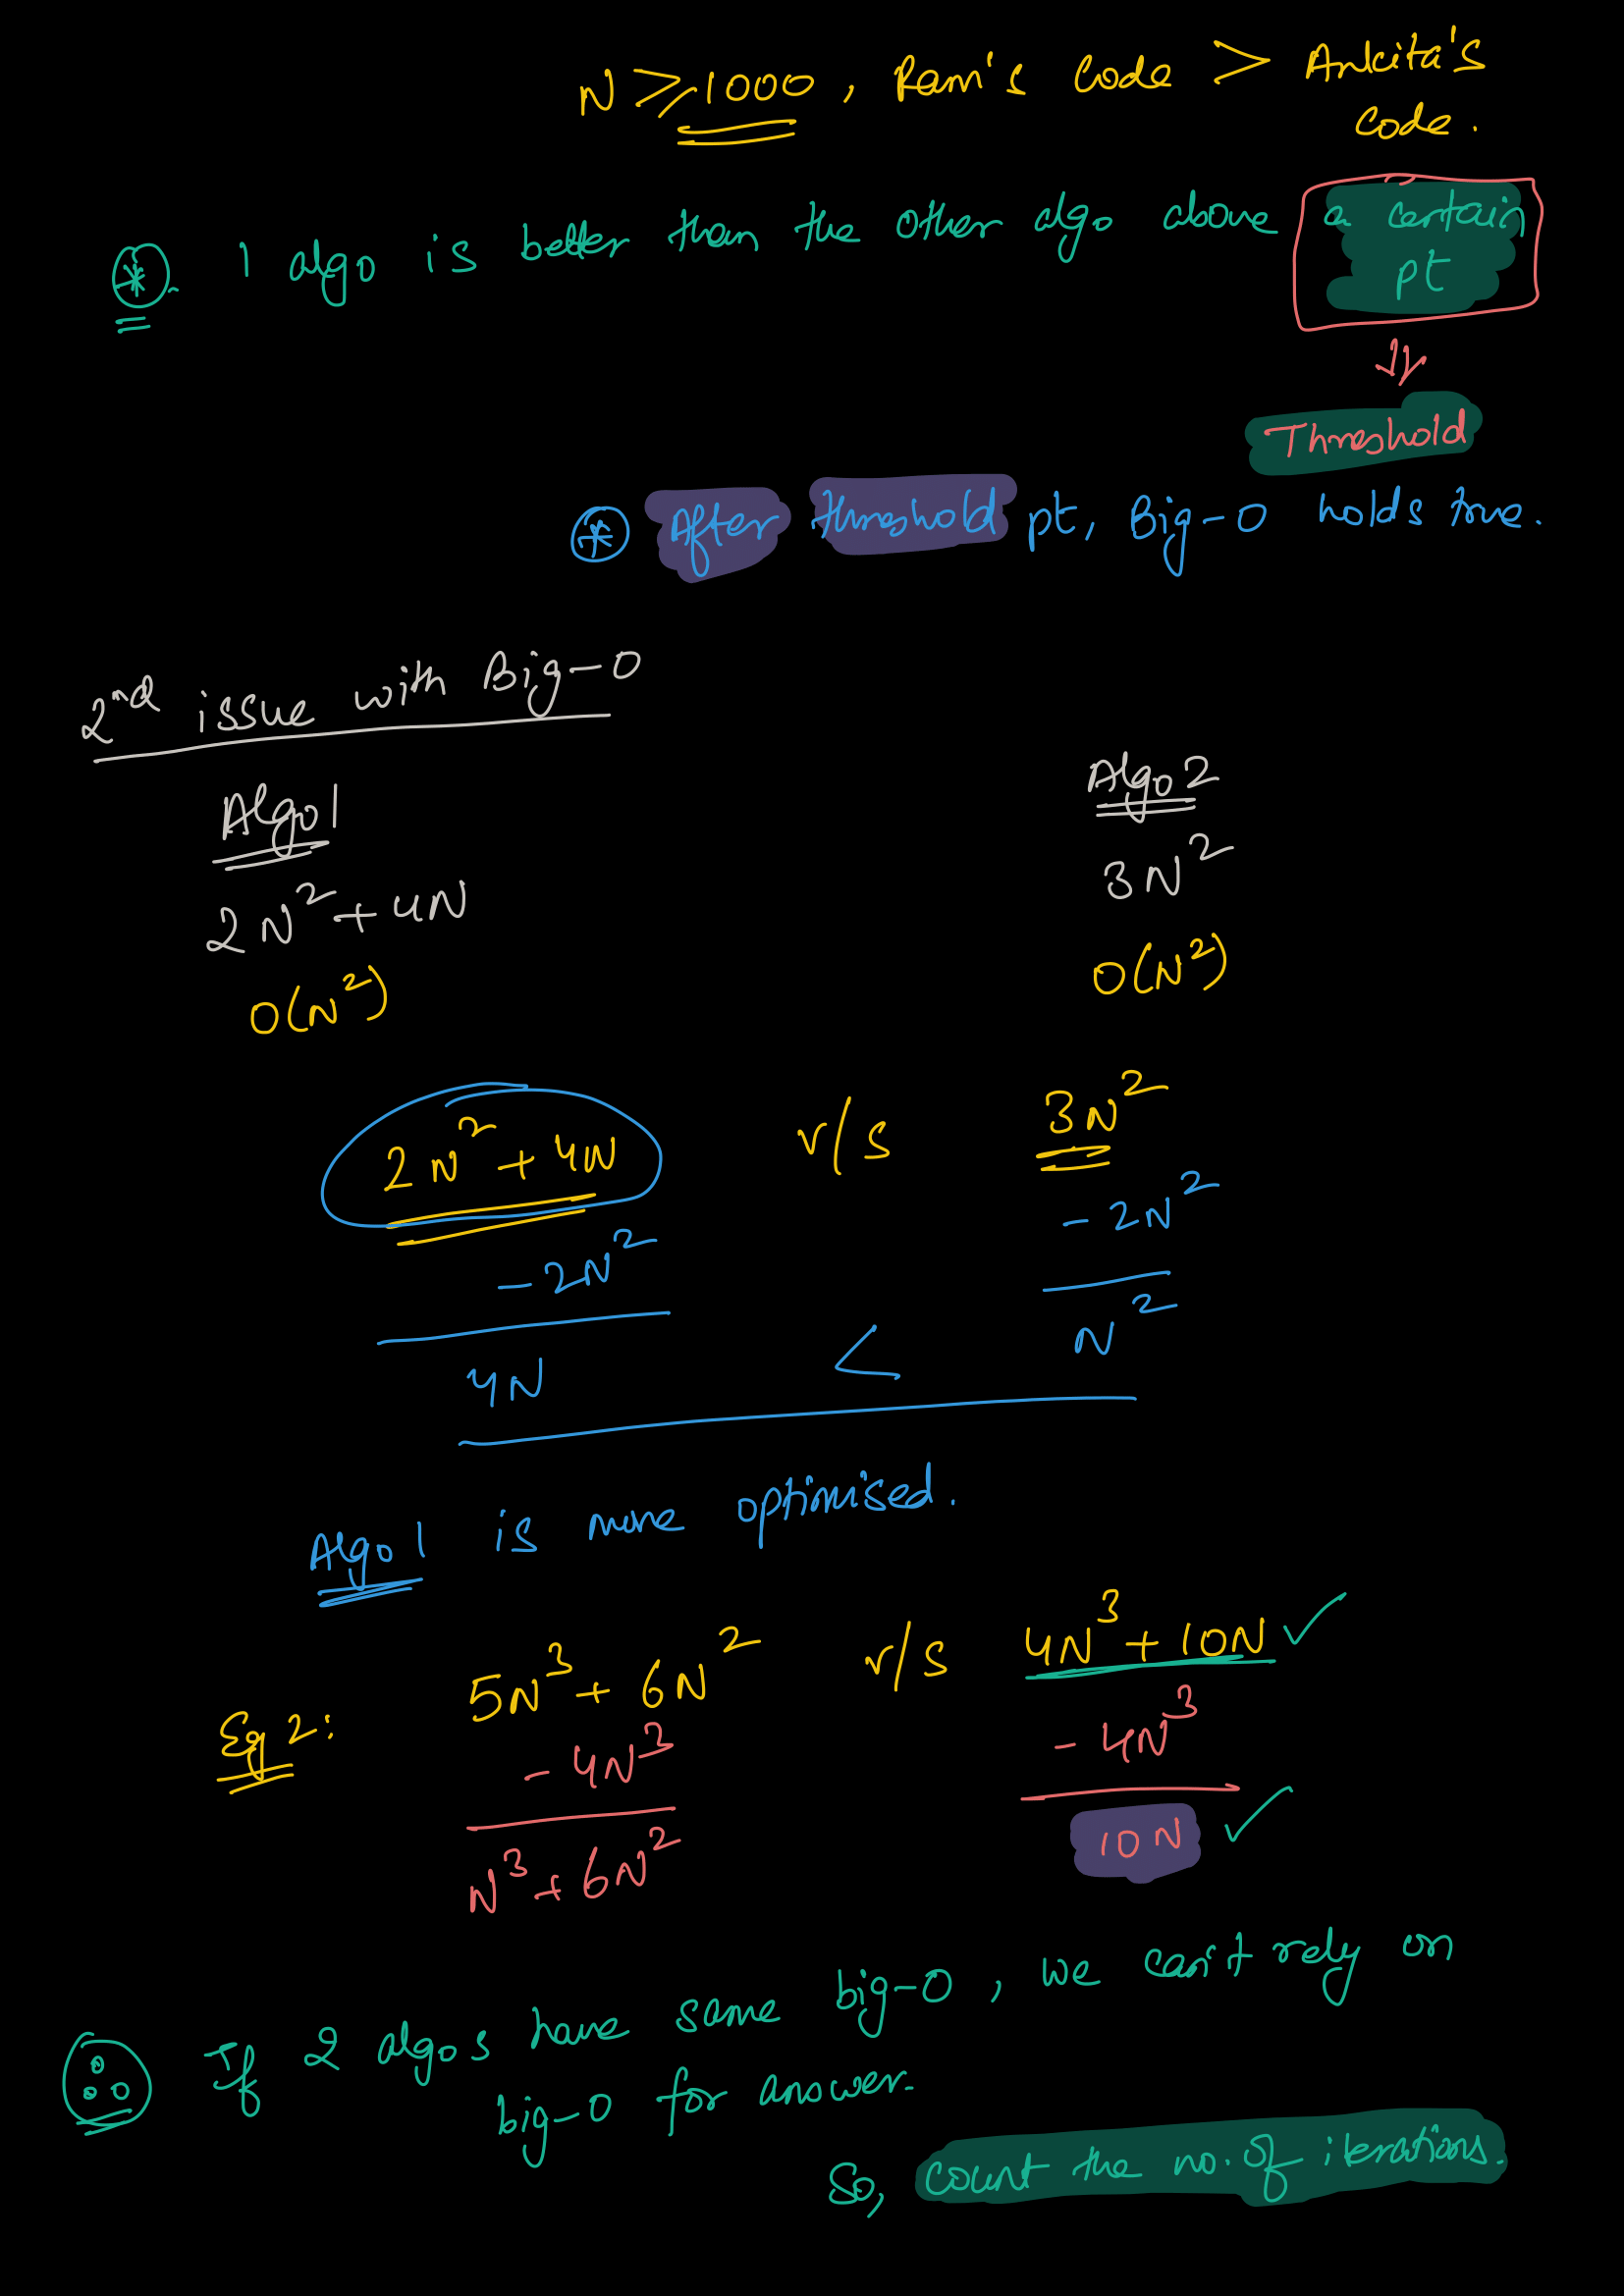 N ≥ 1000, Ram's code > Ankita's
code.
* 1 algo is better than the other algo above a certain
pt
Threshold
* After threshold pt, Big-O holds true.
2nd issue with Big-O
Algo 1 Algo 2
2N² + 4N 3N²
O(N²) O(N²)
2N² + 4N v/s 3N²
- 2N² - 2N²
4N < N²
Algo 1 is more optimised.
Eg 2: 5N³ + 6N² v/s 4N³ + 10N ✓
- 4N³ - 4N³
N³ + 6N² 10N ✓
∴ If 2 algos have same big-O, we can't rely on
big-O for answer.
So, count the no. of iterations.